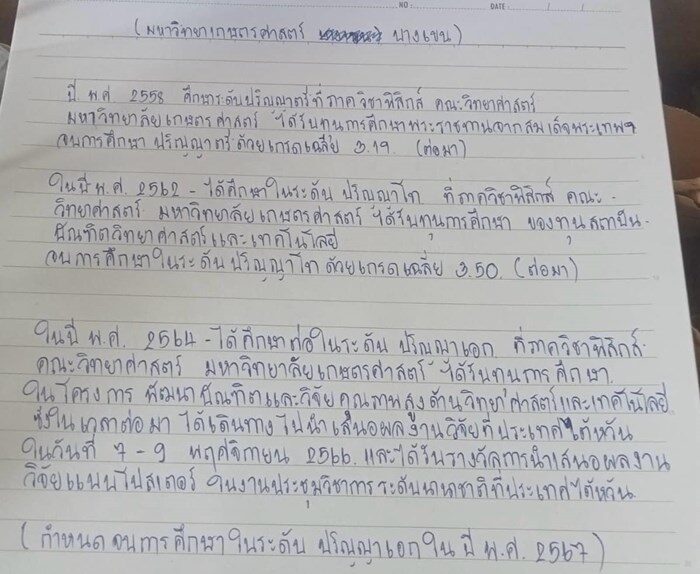 NO : DATE : / /
(มหาวิทยาเกษตรศาสตร์ บางเขน)
ปี พ.ศ. 2558 ศึกษาระดับปริญญาตรีที่ภาควิชาฟิสิกส์ คณะวิทยาศาสตร์
มหาวิทยาลัยเกษตรศาสตร์ ได้รับทุนการศึกษาพระราชทานจากสมเด็จพระเทพฯ
จบการศึกษา ปริญญาตรีด้วยเกรดเฉลี่ย 3.19. (ต่อมา)
ในปี พ.ศ. 2562 - ได้ศึกษาในระดับ ปริญญาโท ที่ภาควิชาฟิสิกส์ คณะ -
วิทยาศาสตร์ มหาวิทยาลัยเกษตรศาสตร์ ได้รับทุนการศึกษา ของทุนสถาบัน -
บัณฑิตวิทยาศาสตร์และเทคโนโลยี
จบการศึกษาในระดับปริญญาโทด้วยเกรดเฉลี่ย 3.50. (ต่อมา)
ในปี พ.ศ. 2564 - ได้ศึกษาต่อในระดับ ปริญญาเอก ที่ภาควิชาฟิสิกส์
คณะวิทยาศาสตร์ มหาวิทยาลัยเกษตรศาสตร์ ได้รับทุนการศึกษา.
ในโครงการ พัฒนาบัณฑิตและวิจัยคุณภาพสูงด้านวิทยาศาสตร์และเทคโนโลยี
ซึ่งในเวลาต่อมา ได้เดินทางไปนำเสนอผลงานวิจัยที่ประเทศไต้หวัน
ในวันที่ 7 - 9 พฤศจิกายน 2566. และได้รับรางวัลการนำเสนอผลงาน
วิจัยแบบโปสเตอร์ ในงานประชุมวิชาการระดับนานาชาติที่ประเทศไต้หวัน
(กำหนดจบการศึกษาในระดับ ปริญญาเอกในปี พ.ศ. 2567)